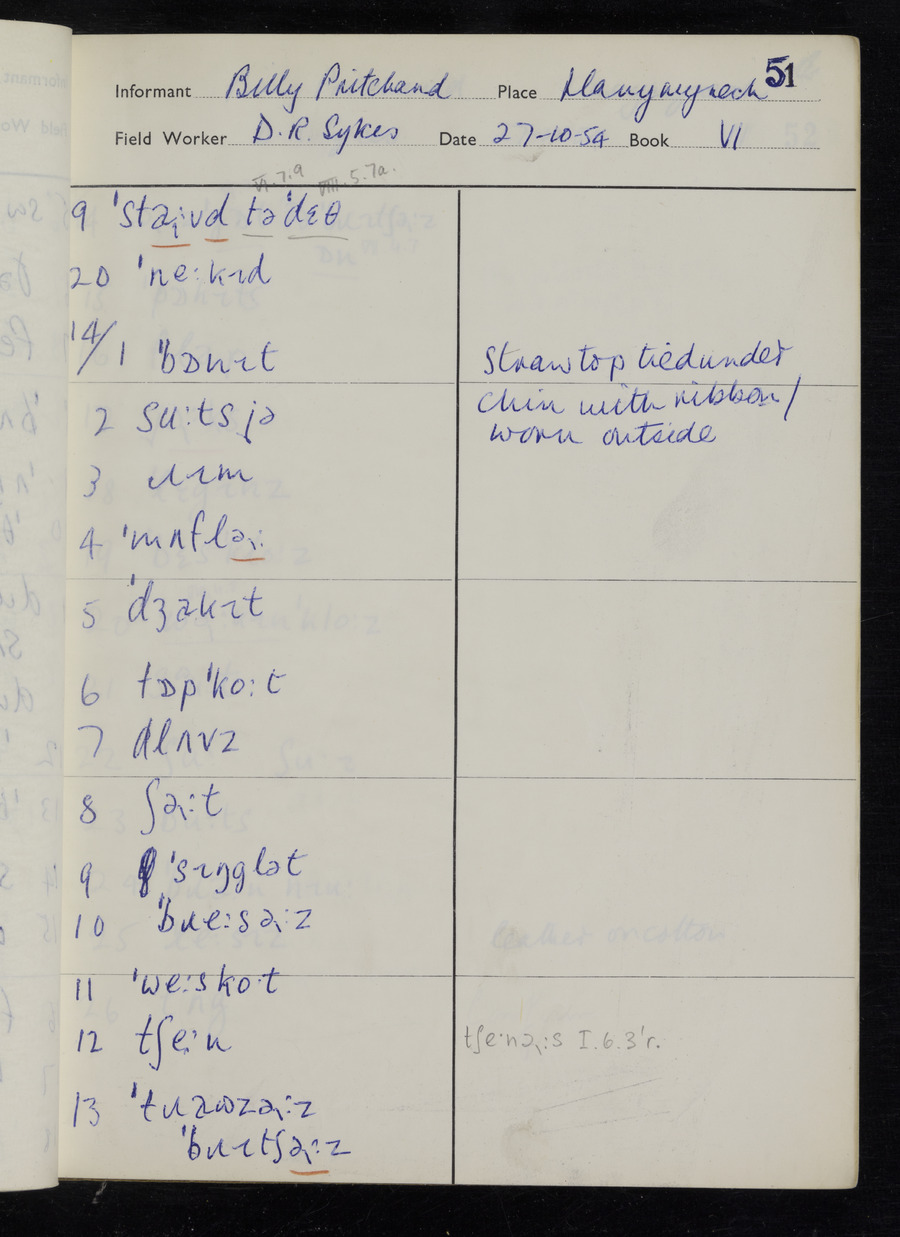 51
Informant Billy Pritchard Place Llanymynech
Field Worker D.R. Sykes Date 27-10-54 Book VI
VI.7.9 VIII.5.7a.
9 'stəɪ:vd tə'dɛθ
20 'ne:kɪd
14/1 'bɒnɪt Straw top tied under
chin with ribbon/
2 su:ts jə
worn outside
3
4 'mʌfləɪ:
5 'dʒakɪt
6 tɒp'ko:t
7 ɡlʌvz
8 ʃəɪ:t
9 'sɪŋglət
10 'bɹe:səɪ:z
11 'we:sko:t
12 tʃe:n tʃe:nəɪ:s I.6.3'r.
13 'tɹaʊzəɪ:z
'bɹɪtʃəɪ:z